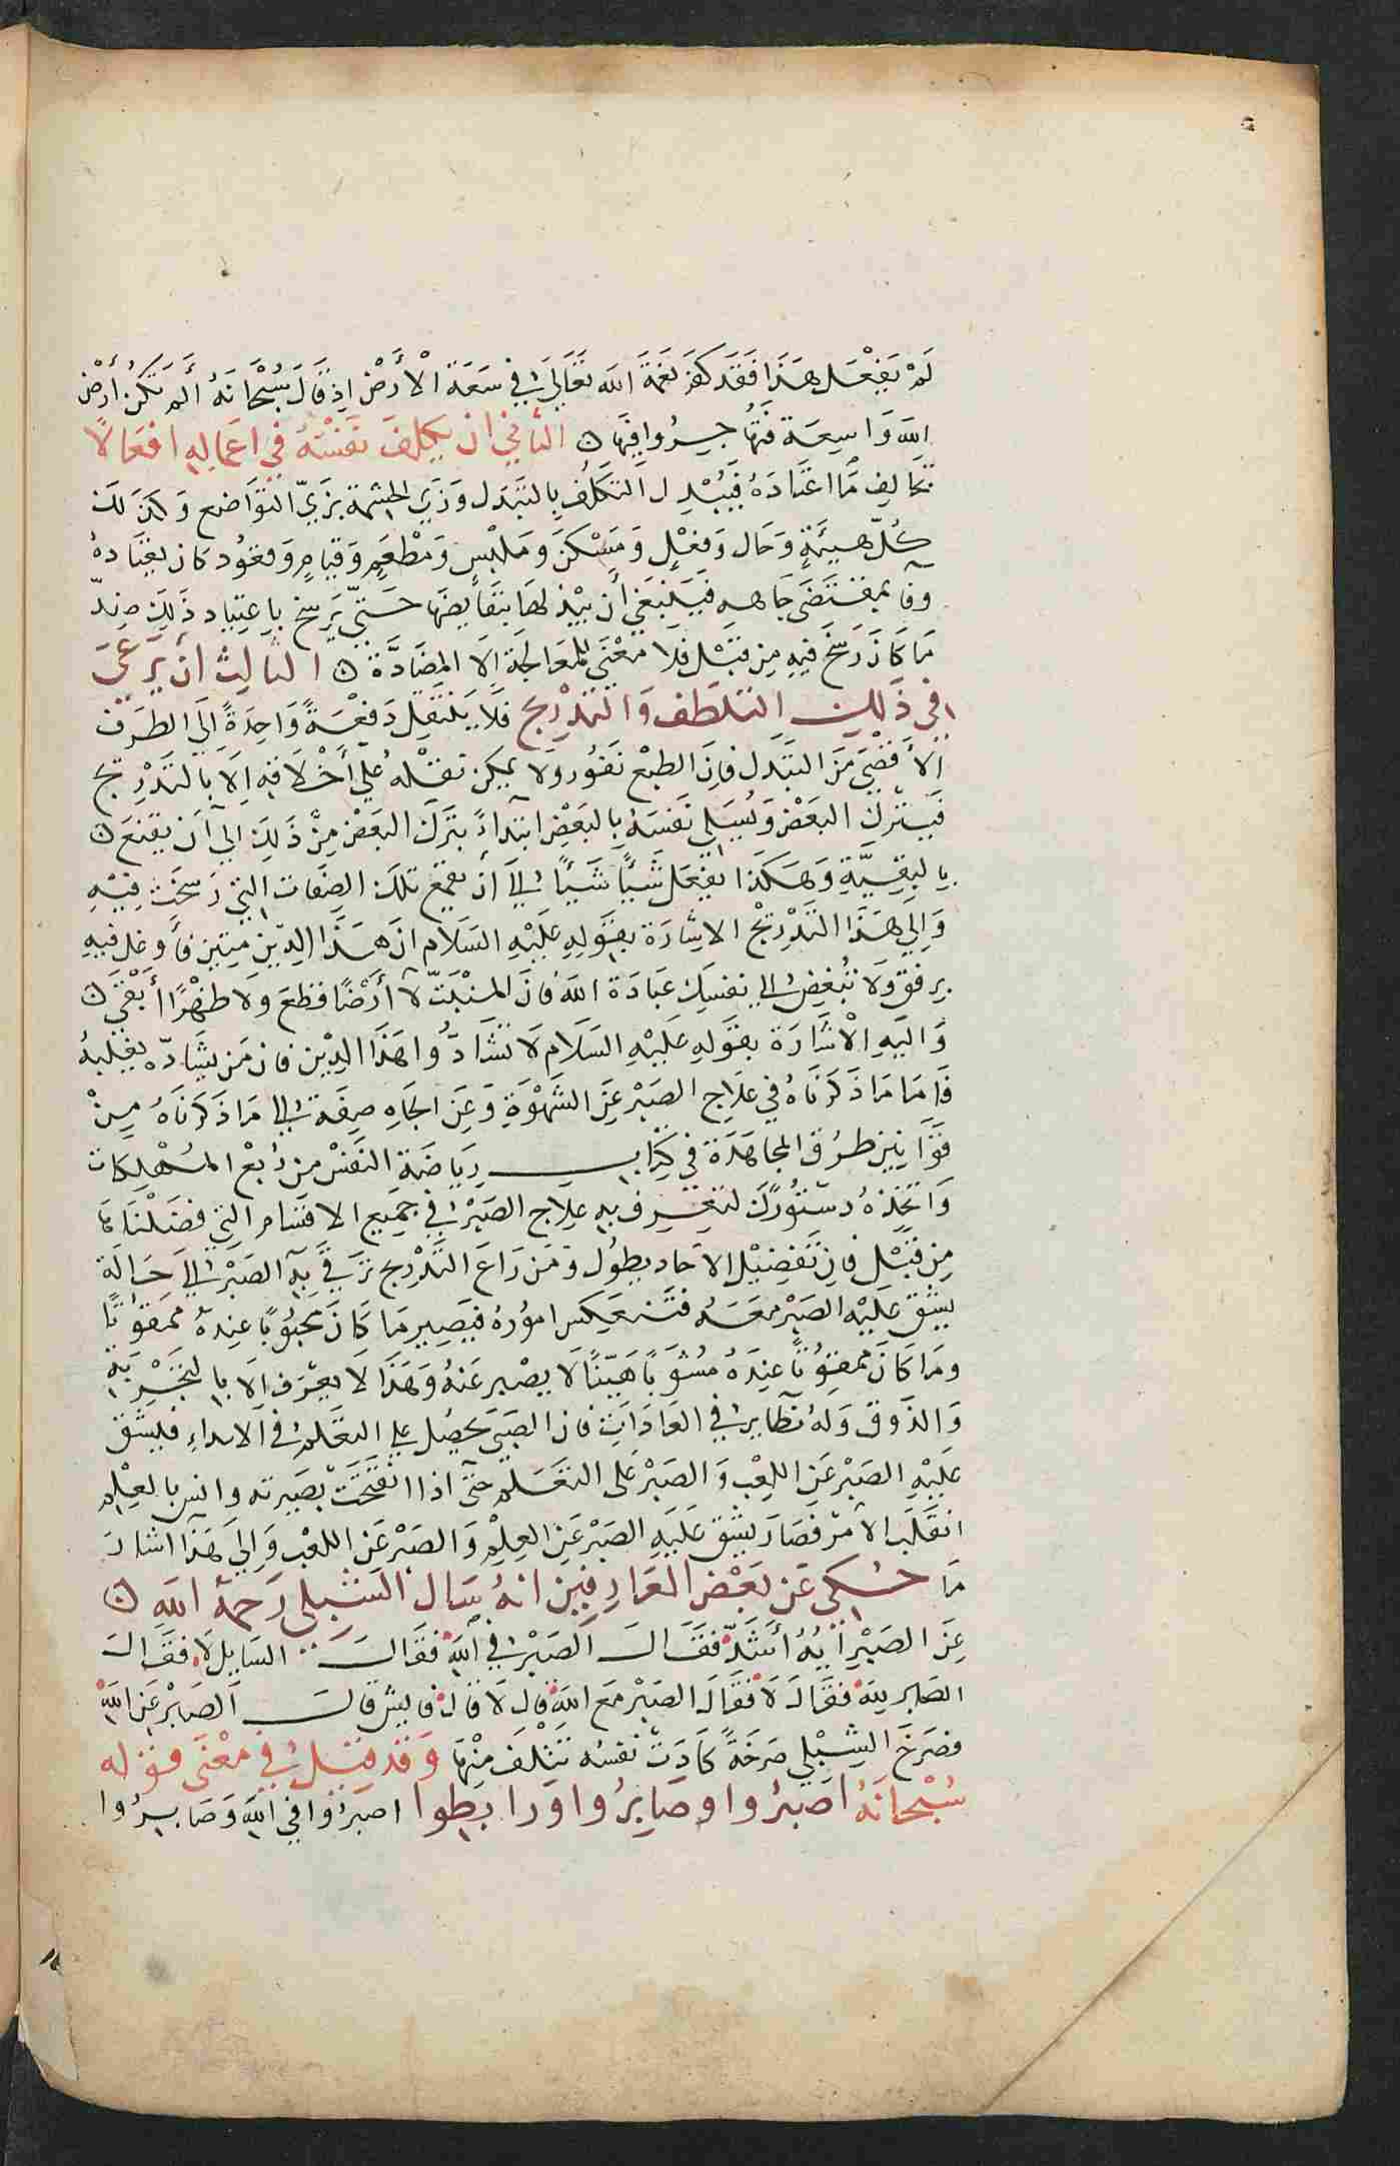 لَمْ يَفْعَل هَذَا فَقَد كَفَر نِعْمَةَ اللَه تَعَالَى فِي سَعَة الْأَرْض اِذ قَالَ سُبْحَانَهُ أَلَم تَكُنْ أَرْضُ
اللَه وَاسِعَة فَتُهَاجِرُوا فِيهَا ن الثاني ان يكلف نَفْسَهُ في اعماله افعالًا
تخالف مَا اعتَادَهُ فَيُبْدِل التكَلُف بِالتَبَدل وَزَى الحِشمة بزيّ التوَاضع وَكَذلك
كُلّ هَيئَةٍ وَحَال وَفِعْلٍ وَمَسْكَن وَمَلْبَسٍ وَمَطْعَمٍ وَقيَامٍ وَقعُود كان يعتَادهُ
وفآ بمقتَضَى جَاهه فيَنبَغي أن يبْدلهَا بنَقَايضهَا حَتَّى يَرسخ باعِتيَاد ذَلِكَ ضِدّ
مَا كَانَ رَسَخَ فِيهِ مِن قَبْل فلا مَعْنَى للمعَالجَة اِلَا المضَادَّة ن الثالث ان يَرعَى
في ذَلِك التلَطف وَالتدْرِيج فلَا يَنتَقل دَفعَةً وَاحِدَةً الَى الطرَف
الأقصَى مَنَ التبَدل فَاِنَ الطبْع نَفُور ولا يمكن نقلهُ عَلي أَخْلاقه اِلَا بالتَدْرِيج
فَيَترك البَعْض وَيُسَلي نَفسَهُ بِالبَعْضِ ابتدآءً بتَركَ البَعْض مِنْ ذَلِكَ الي أن يَقنَعَ ن
بالبَقِيَّةِ وَهَكَذا يفعَل شَيْأً شَيْأً الي أن يقمَع تلك الصفات التي رَسَخَت فيْهِ
وَالِي هَذَا التَدْرِيْجْ الاشَارَة بقَولِهِ عَلَيْهِ السَلَام ان هَذَا الدِيْن مَتِين فَأَوغل فيهِ
برفق وَلَا تُبْغض الي نفسِك عبَادَة اللَه فانَ المنْبَتّ لا أَرْضًا قطَعَ وَلَا ظهْرًا أَبْقَى ن
وَاليَهِ الْاشَارَة بقَولهِ عَليْهِ السَلَامِ لَا تشَادُّوا هَذَا الدِيْن فان مَن يشَادّه يغلبهُ
فَامَا مَا ذَكَرْنَاهُ فِي علَاج الصَبْر عَنَ الشَهْوَةِ وَعَنَ الجَاهِ صِفَة الي مَا ذَكَرنَاهُ مِنْ
قَوَانِينِ طُرُق المجَاهَدَة في كِتَابِ رِيَاضَة النَفسْ من رُبْع المُهْلِكَات
وَاتّخذهُ دستُورًك لتَعْرِف به عِلاج الصَبْرِ في جَميع الاقسَام التي فصَلْنَاهَا
مِن قَبْل فان تَفصِيْل الاحاد يطول وَمَن رَاعَ التَدْرِيج تَرَقى بِهِ الصَبْر الي حَالَة
يشُق عَليْه الصَبْر معَهُ فتَنعَكس امُورهُ فيَصِير مَا كَانَ محبُوبًا عندهُ ممقُوتًا
ومَا كَانَ ممقُوتًا عِندَهُ مُشوَبًا هَيِّنًا لَا يصْبر عَنهُ وَهَذَا لَا يعْرَف اِلَا بالتجْربَةِ
وَالذَوق وَلهُ نظَاير في العَادَاتِ فان الصَبي يحصُل علي التعَلم في الابتداءِ فليَشُق
عَلَيْهِ الصَبْر عَنِ اللعِب وَالصَبْر عَلى التعَلم حَتَّى اذا انفَتحَتْ بَصَيرته وانس بالعِلْم
انقَلَب الامْر فصَارَ يشُق عَلَيهِ الصَبْر عَنِ العِلْم وَالصَبْر عَن اللعْب وَاِلِى هَذَا اشارَ
مَا حُكِي عَن بَعْض العَارِفين انهُ سَال الشبلي رَحمَة اللَه ن
عَنَ الصَبْرِ أيهُ أشَدّ فقَالَ الصَبْرُ في اللَه فقَالَ السَايل لَا فقَالَ
الصَابر لله فقَالَ لَا فقَالَ الصَبْر مَع اللَه قال لَا قَال فايش قالَ الصَابر عَنِ اللَه
فصَرَخَ الشِبْلي صَرخَةً كَادَتْ نفسُه تتْلَف مِنْهَا وَقَد قيل في مَعْنَى قوله
سُبْحَانَهُ اصبرُوا وصَابرُوا وَرابطوا اصبرُوا في اللَه وَصَابرُوا